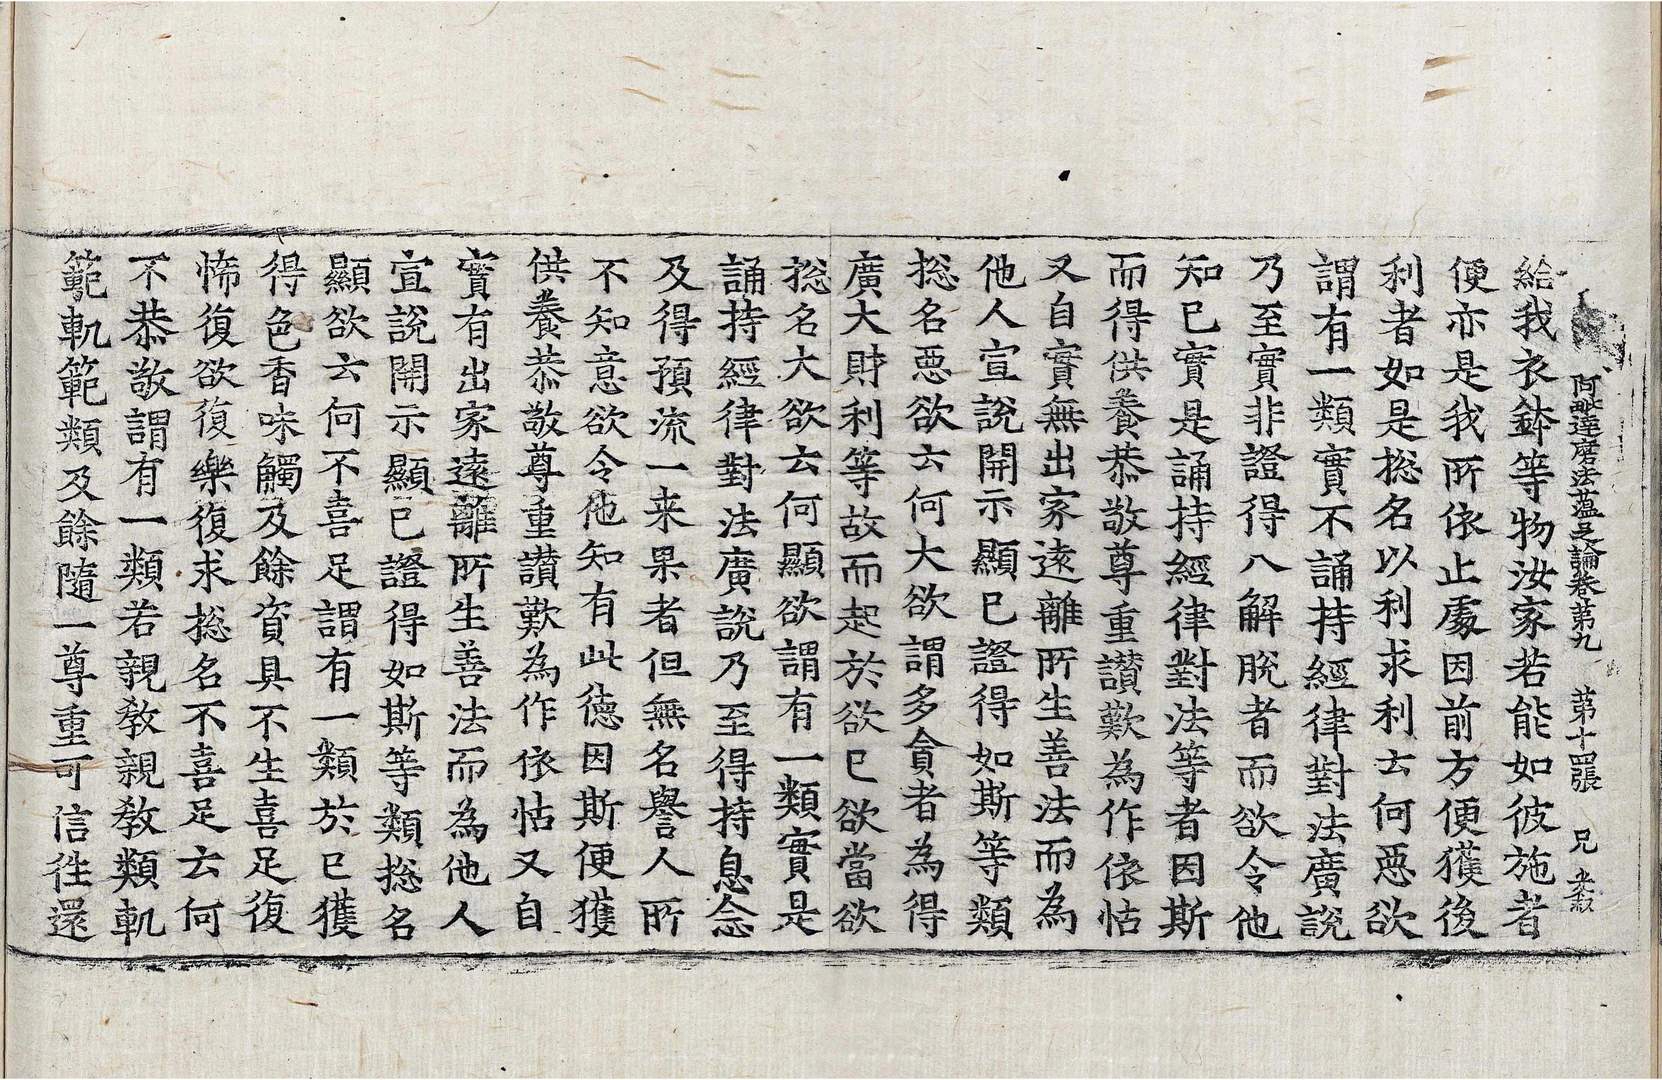 阿毗達磨法蘊足論卷第九 第十四張 兄
給我衣鉢等物汝家若能如彼施者
便亦是我所依止處因前方便獲後
利者如是捴名以利求利云何惡欲
謂有一類實不誦持經律對法廣說
乃至實非證得八解脫者而欲令他
知已實是誦持經律對法等者因斯
而得供養恭敬尊重讃歎為作依怙
又自實無出家遠離所生善法而為
他人宣說開示顯已證得如斯等類
捴名惡欲云何大欲謂多貪者為得
廣大財利等故而起於欲已欲當欲
捴名大欲云何顯欲謂有一類實是
誦持經律對法廣說乃至得持息念
及得預流一来果者但無名譽人所
不知意欲令他知有此德因斯便獲
供養恭敬尊重讃歎為作依怙又自
實有出家遠離所生善法而為他人
宣說開示顯已證得如斯等類捴名
顯欲云何不喜足謂有一類於已獲
得色香味觸及餘資具不生喜足復
悕復欲復樂復求捴名不喜足云何
不恭敬謂有一類若親教親教類軌
範軌範類及餘隨一尊重可信徃還